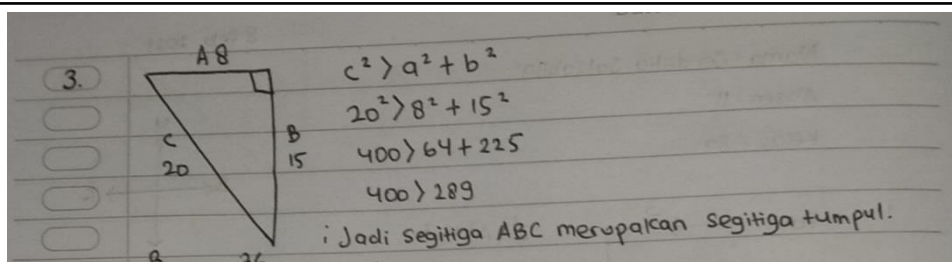 3.
A 8
c² > a² + b²
20² > 8² + 15²
C
20
B
15
400 > 64 + 225
400 > 289
; Jadi segitiga ABC merupakan segitiga tumpul.